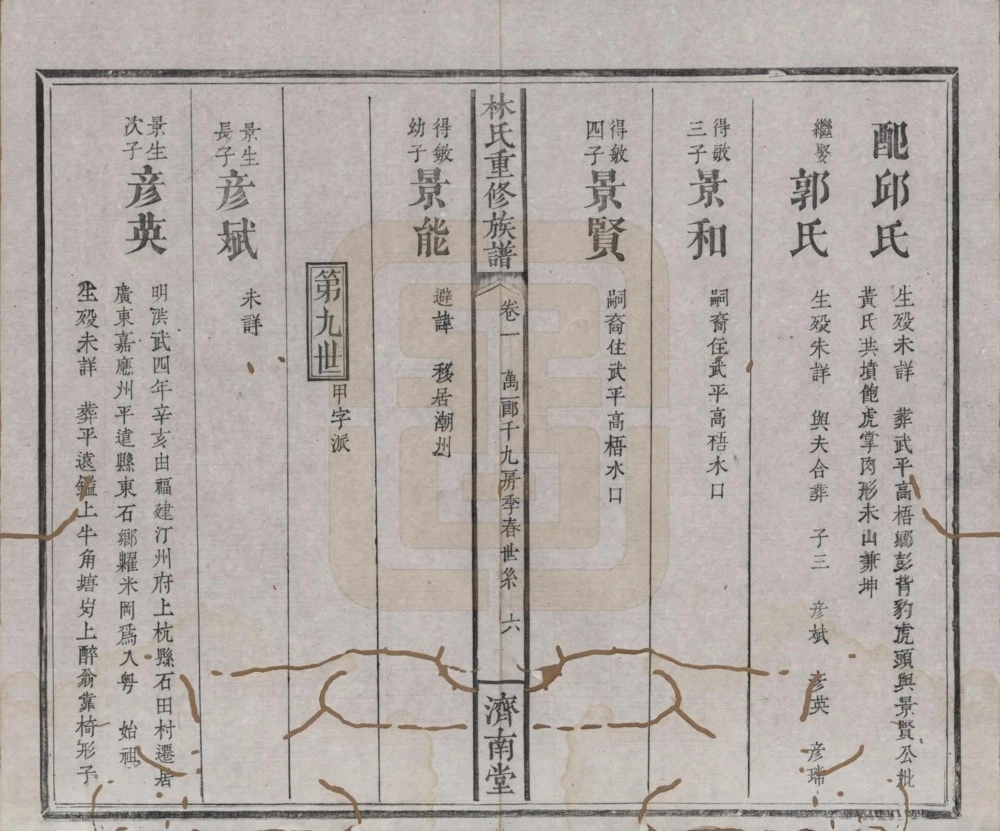 配邱氏
生殁未詳 葬武平高梧鄉彭背豹虎頭與景賢公毗
黃氏共墳飽虎掌肉形未山兼坤
繼娶郭氏
生殁未詳 與夫合葬 子三 彥斌 彥英 彥瑞
得敏三子景和
嗣裔住武平高梧水口
得敏四子景賢
嗣裔住武平高梧水口
林氏重修族譜 卷一 萬一郎千九房季春世系 六 濟南堂
得敏幼子景能
避諱 移居潮州
第九世 甲字派
景生長子彥斌
未詳
景生次子彥英
明洪武四年辛亥由福建汀州府上杭縣石田村遷居
廣東嘉應州平遠縣東石鄉糶米岡爲入粵 始祖
生殁未詳 葬平遠鑑上牛角塘岃上醉翁靠椅形子